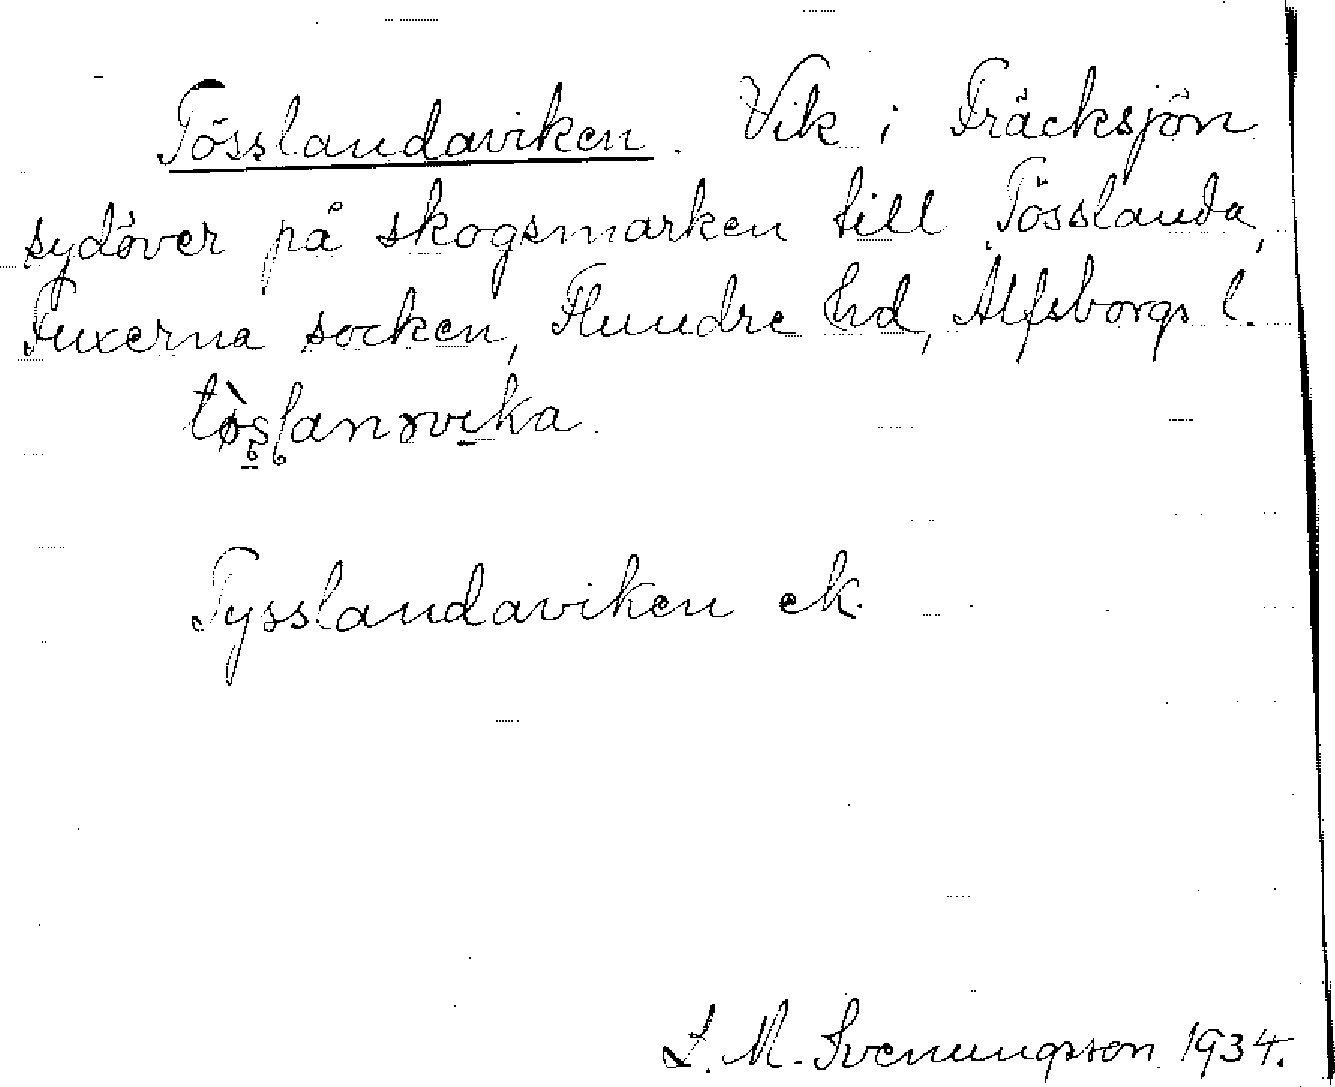 Tösslandaviken. Vik i Träcksjön
sydöver på skogsmarken till Tösslanda,
Fuxerna socken, Flundre hd, Älfsborgs l.
Tysslandaviken ek.
L. M. Svenungsson 1934.